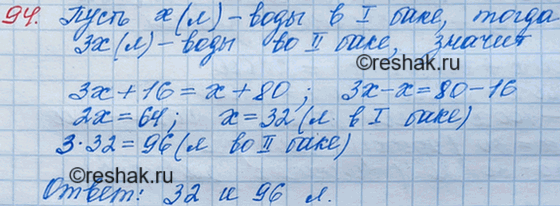 94. Пусть x (л) - воды в I баке, тогда
3x (л) - воды во II баке, значит
©reshak.ru
3x + 16 = x + 80; 3x - x = 80 - 16
2x = 64; x = 32 (л в I баке)
3·32 = 96 (л во II баке)
©reshak.ru
Ответ: 32 и 96 л.